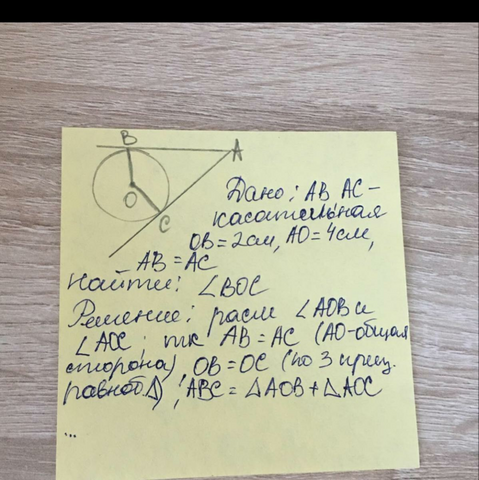 B
A
O
C
Дано: AB AC -
касательная
OB = 2см, AO = 4см,
AB = AC
Найти: ∠BOC
Решение: расм ∠AOB и
∠AOC: тк AB = AC (AO-общая
сторона), OB = OC (по 3 приз.
равной Δ); ABC = ΔAOB + ΔAOC
...